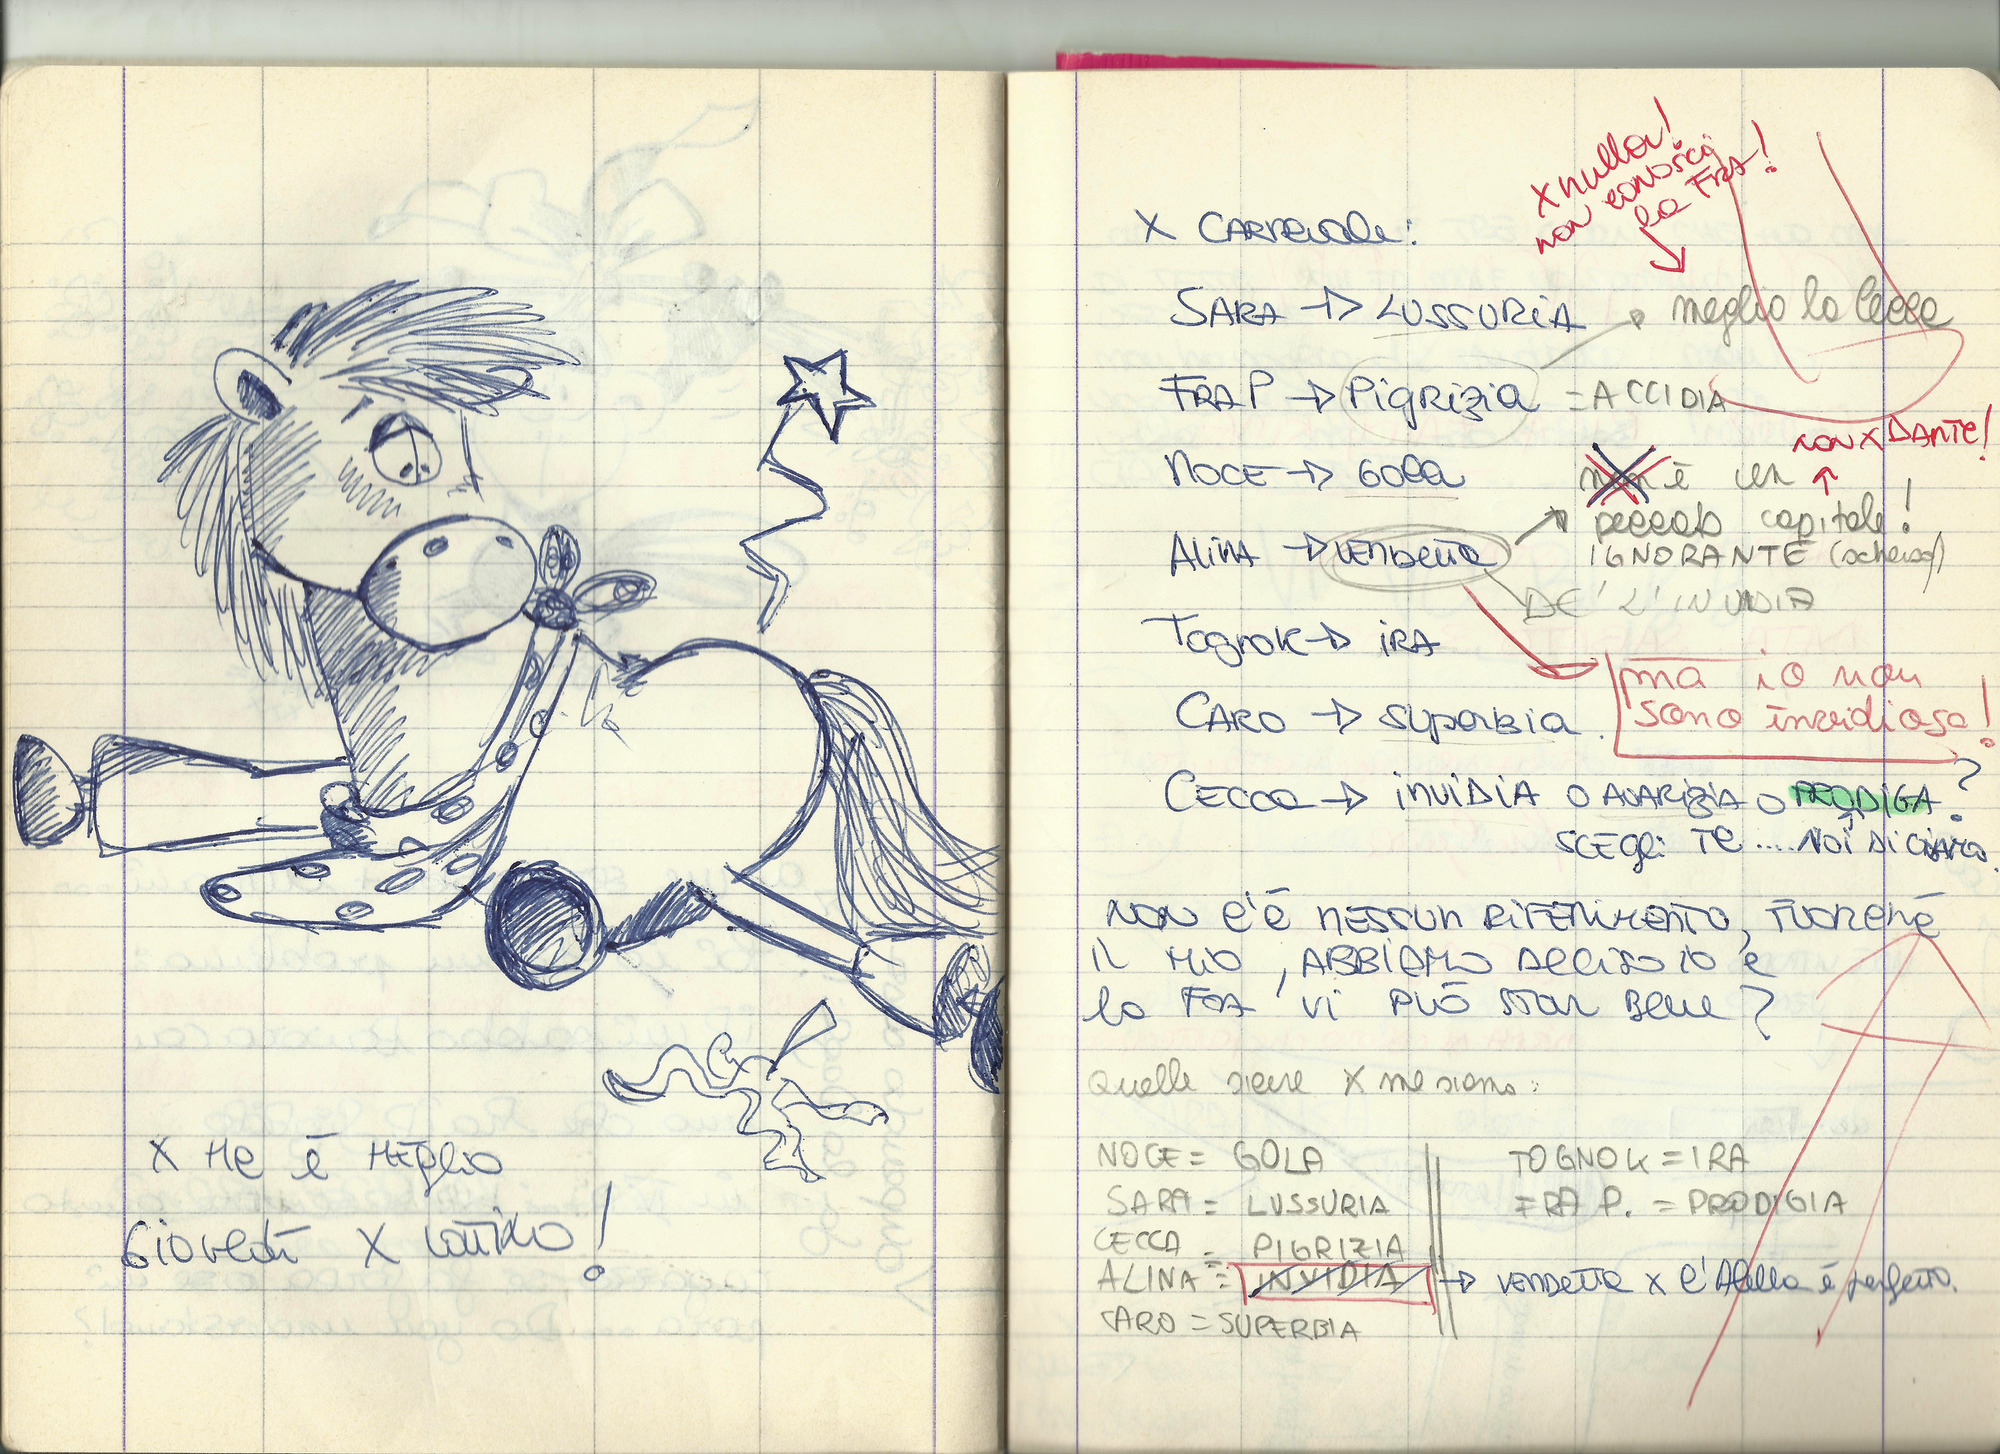 x ME è MEglio
Giovedì x latino!
x nulla!
non conosci
la FRA!
X CARNEVALE:
SARA → LUSSURIA
meglio la Cecca
FRA P → Pigrizia = ACCIDIA
NON X DANTE!
NOCE → GOLA
è un
peccato capitale!
IGNORANTE (scherzo)
Alina → VENDETTA
DE' L'INVIDIA
TognoK → iRA
ma io non
sono invidiosa!
CARO → SUPERBIA.
CECCA → INVIDIA O AVARIZIA O PRODIGA?
SCEGLI TE .... NOI DICIAMO.
NON C'È NESSUN RIFERIMENTO, FUORCHÉ
IL MIO, ABBIAMO DECISO IO e
la FRA, VI PUÒ STAR BENE?
Quelle serie x me siamo:
NOCE = GOLA
SARA = LUSSURIA
CECCA = PIGRIZIA
ALINA = INVIDIA → VENDETTA x è perfetto.
CARO = SUPERBIA
TOGNOK = IRA
FRA P. = PRODIGIA